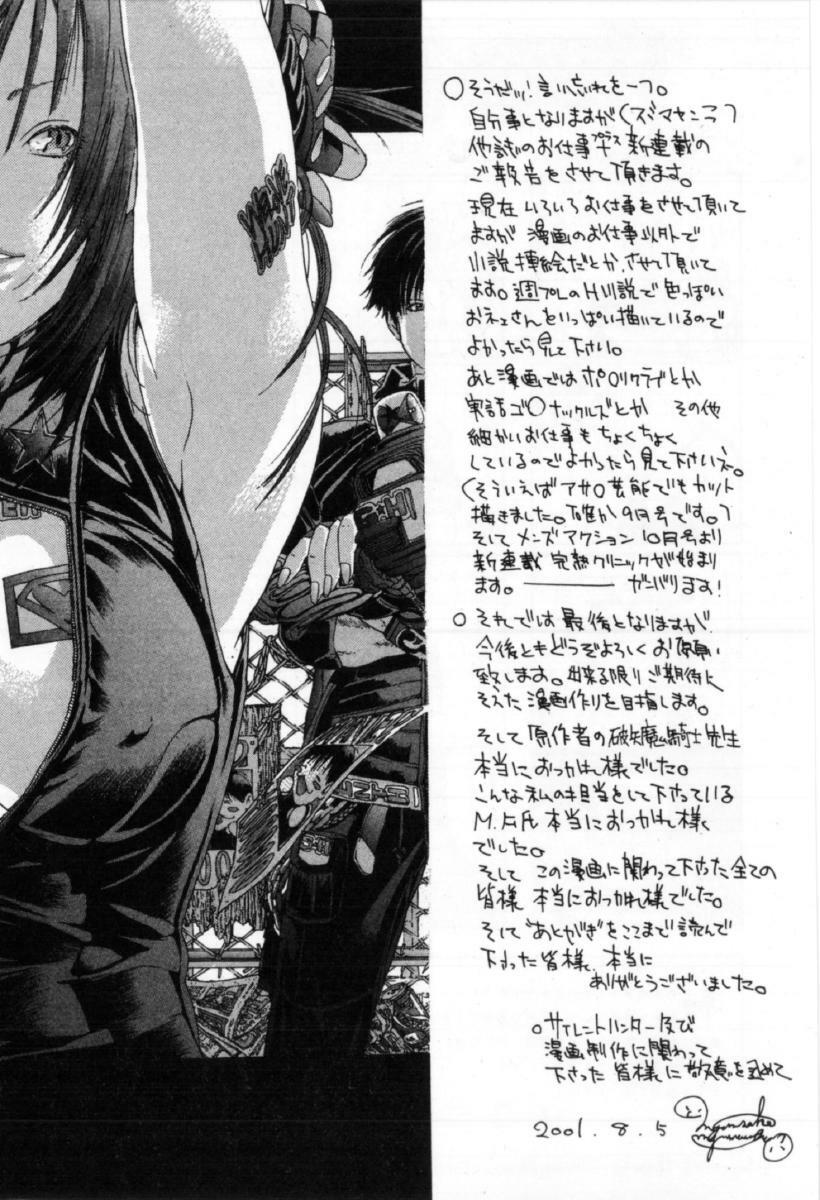 ○そうだッ!言い忘れを一つ。
自分事となりますが(スミマセンネ)
他誌のお仕事プラス新連載の
ご報告をさせて頂きます。
現在いろいろお仕事をさせて頂いて
ますが 漫画のお仕事以外で
小説挿絵だとか、させて頂いて
ます。週プレのH小説で色っぽい
おネェさんといっぱい描いているので
よかったら見て下さい。
あと漫画ではポ○リクラブとか
実話ゴ○ナックルズとか その他
細かいお仕事もちょくちょく
しているのでよかったら見て下さいネ。
(そういえばアサ○芸能でもカット
描きました。確か9月号です。)
そしてメンズアクション10月号より
新連載 完熟クリニックが始まり
ます。――― ガンバリます!
○それでは最後となりますが
今後ともどうぞよろしくお願い
致します。出来る限りご期待に
そえた漫画作りを目指します。
そして原作者の破矢魔騎士先生
本当におつかれ様でした。
こんな私の担当をして下さっている
本当におつかれ様
でした。
そして この漫画に関わって下さった全ての
皆様 本当におつかれ様でした。
そして"あとがき"をここまで読んで
下さった皆様、本当に
ありがとうございました。
○サイレントハンター及び
漫画制作に関わって
下さった皆様に敬意を込めて
2001.8.5